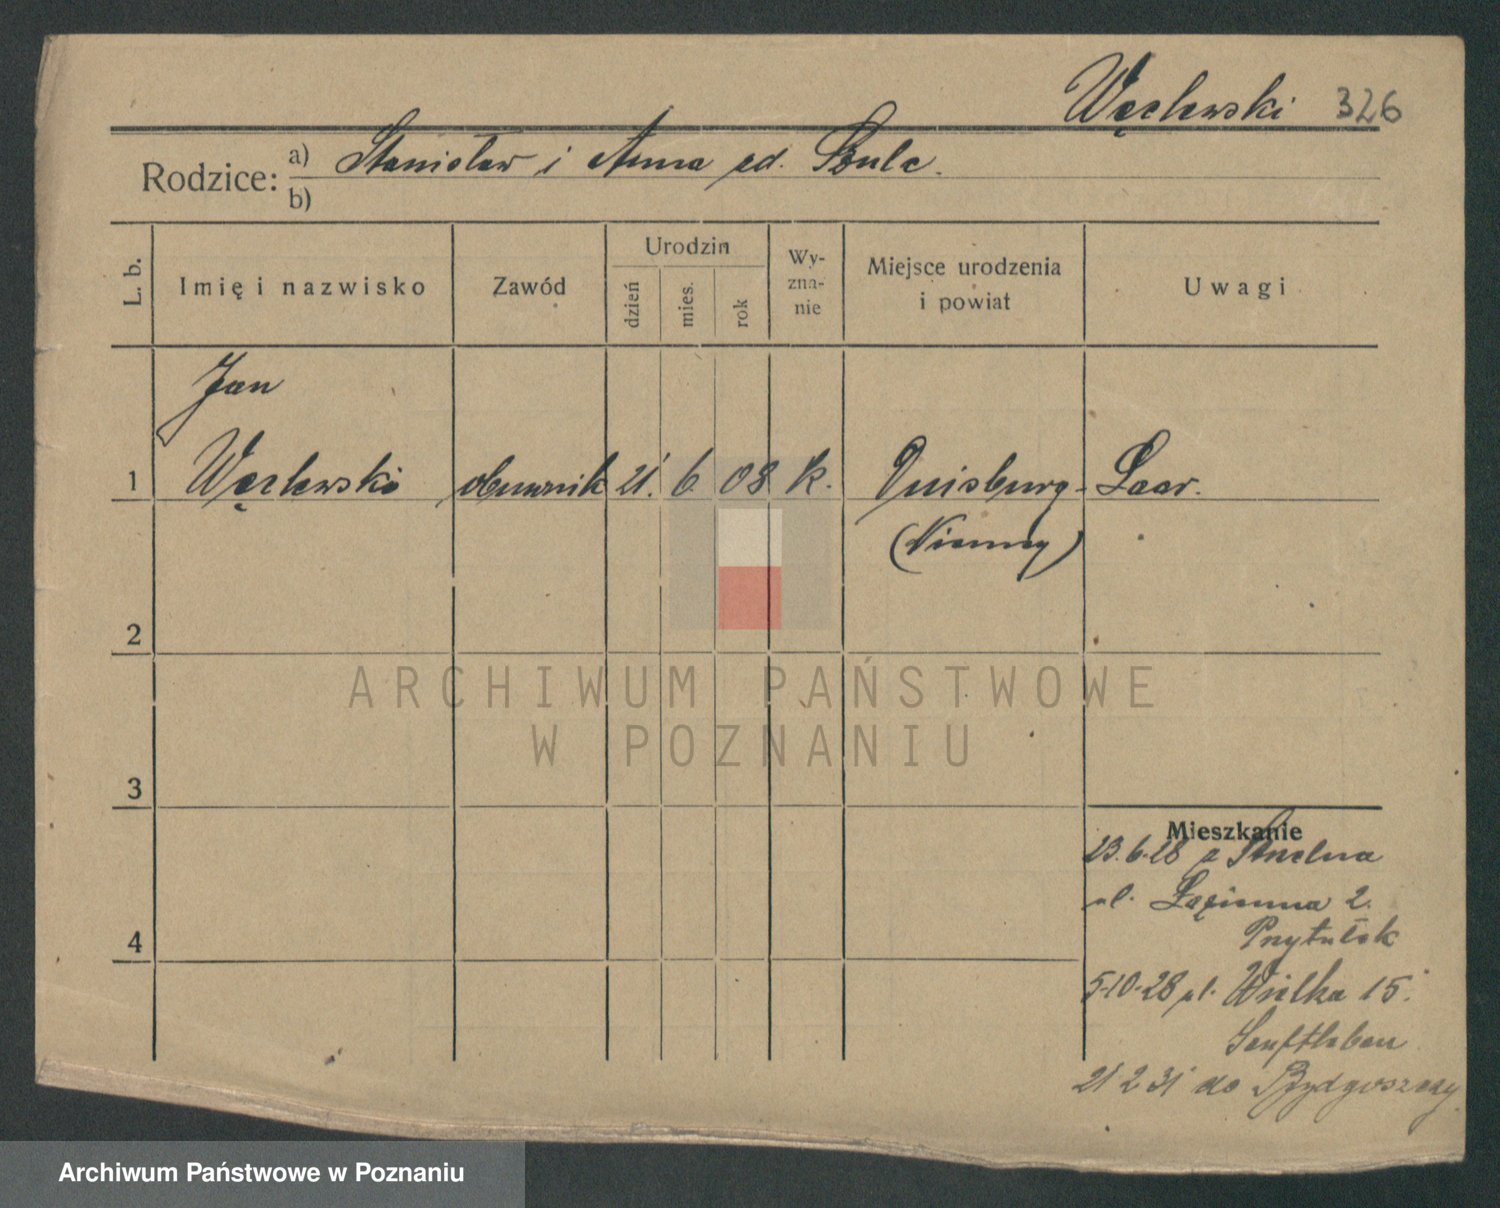 Węclewski 326
Rodzice: a) Stanisław i Anna zd. Szulc.
b)
L. b.
Imię i nazwisko
Zawód
Urodzin
dzień
mies.
rok
Wy-
zna-
nie
Miejsce urodzenia
i powiat
Uwagi
Jan
1 Węclewski obuwnik 21. 6. 08 k. Duisburg-Laar.
(Niemcy)
2
3
4
Mieszkanie
23.6.28 z Strzelna
ul. Łazienna 2.
Przytułek
5-10-28 ul. Wielka 15.
Senftleben
21 2 31 do Bydgoszczy
ARCHIWUM PAŃSTWOWE
W POZNANIU
Archiwum Państwowe w Poznaniu